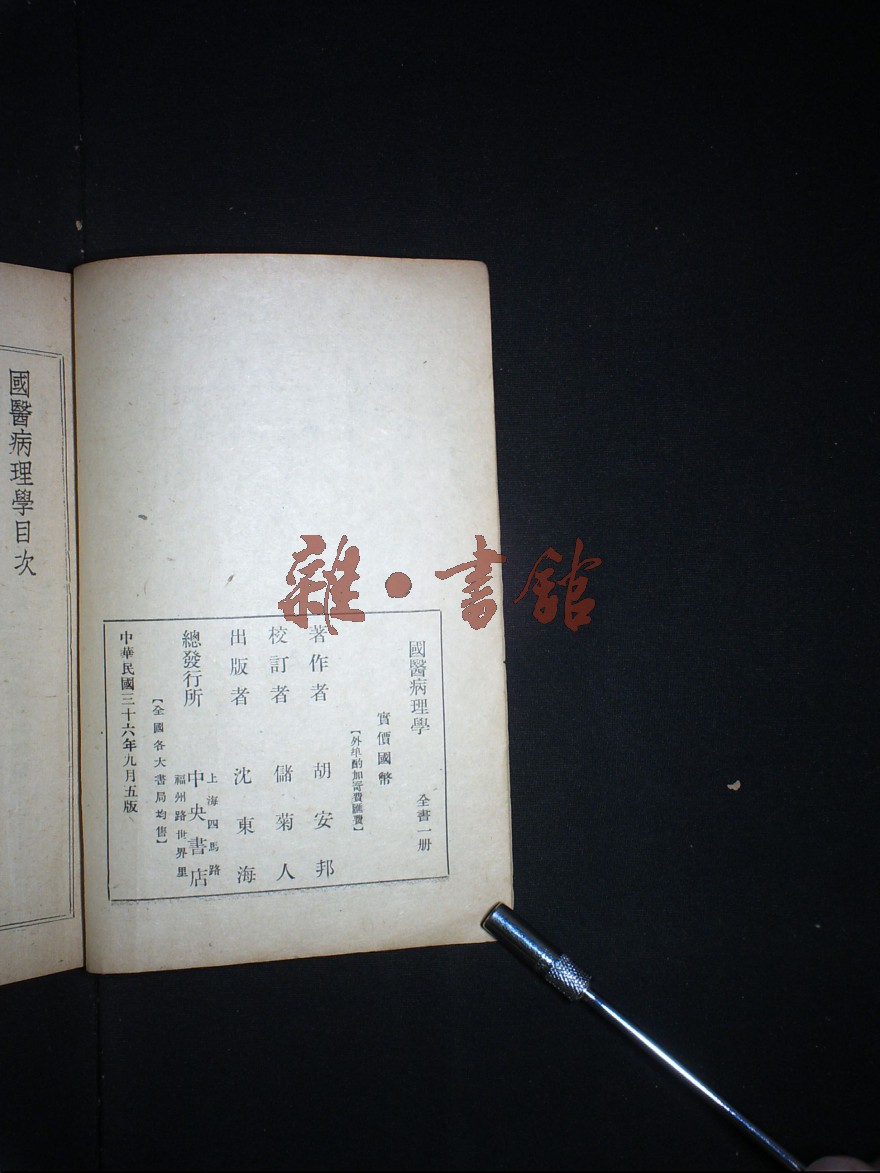 國醫病理學 全書一册
實價國幣
【外埠酌加寄費匯費】
著作者 胡安邦
校訂者 儲菊人
出版者 沈東海
上海四馬路
總發行所 中央書店
福州路世界里
【全國各大書局均售】
中華民國三十六年九月五版
國醫病理學目次
雜·書館